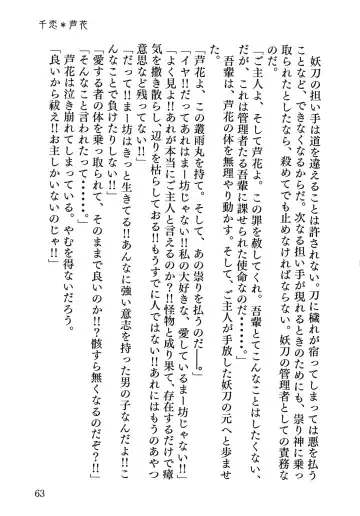 千恋＊芦花
妖刀の担い手は道を違えることは許されない。刀に穢れが宿ってしまっては悪を払う
ことなど、できなくなるからだ。次なる担い手が現れるときのためにも、祟り神に乗っ
取られたとしたなら、殺めてでも止めなければならない。妖刀の管理者としての責務な
のだ。
「ご主人よ、そして芦花よ。この罪を赦してくれ。吾輩とてこんなことはしたくない。
だが、これは管理者たる吾輩に課せられた使命なのだ・・・・・・。
吾輩は、芦花の体を無理やり動かす。そして、ご主人が手放した妖刀の元へと歩ませ
た。
「芦花よ、この叢雨丸を持て。そして、あの祟りを払うのだ――。」
「イヤ!!だってあれはまー坊じゃない!!私の大好きな、愛しているまー坊じゃない!!」
「よく見よ!!あれが本当にご主人と言えるのか?!怪物と成り果て、存在するだけで瘴
気を撒き散らし、辺りを枯らしておる!!もうすでに人ではない!!あれにはもうあやつの
意思など残ってない!!」
「だって!!まー坊はきっと生きてる!!あんなに強い意志を持った男の子なんだよ!!こ
んなことで負けたりしない!!」
「愛する者の体を乗っ取られて、そのままで良いのか!!?骸すら無くなるのだぞ?!!」
「そんなこと言われたって・・・・・・。」
芦花は泣き崩れてしまっている。やむを得ないだろう。
「良いから祓え!!お主しかいないのじゃ!!」
63